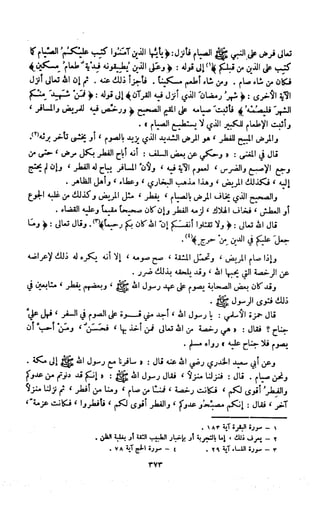 تعالى فرض على النبي ﷺ الصيام فأنزل : ( يا أيها الذين آمنوا كتب عليكم الصيام كما
كتب على الذين من قبلكم ) إلى قوله : ( وعلى الذين يطيقونه فدية طعام مسكين )
فكان من شاء صام . ومن شاء أطعم مسكينا . فأجزأ ذلك عنه . ثم إن الله تعالى أنزل
الآية الأخرى : ( شهر رمضان الذي أنزل فيه القرآن ) إلى قوله : ( فمن شهد منكم
الشهر فليصمه ) فأثبت صيامه على المقيم الصحيح ورخص فيه للمريض والمسافر ،
وأثبت الإطعام للكبير الذي لا يستطيع الصيام » .
والمرض المبيح للفطر ، هو المرض الشديد الذي يزيد بالصوم ، أو يخشى تأخر برئه(٢).
قال في المغني : « وحكي عن بعض السلف : أنه أباح الفطر بكل مرض ، حتى من
وجع الإصبع والضرس ، لعموم الآية فيه ، ولأن المسافر يباح له الفطر ، وإن لم يحتج
إليه ، فكذلك المريض ، وهذا مذهب البخاري ، وعطاء ، وأهل الظاهر .
والصحيح الذي يخاف المرض بالصيام ، يفطر ، مثل المريض وكذلك من غلبه الجوع
أو العطش ، فخاف الهلاك ، لزمه الفطر وإن كان صحيحا مقيما وعليه القضاء .
قال الله تعالى : ( ولا تقتلوا أنفسكم إن الله كان بكم رحيما )(٣). وقال تعالى : ( وما
جعل عليكم في الدين من حرج )(٤).
وإذا صام المريض ، وتحمل المشقة ، صح صومه ، إلا أنه يكره له ذلك لإعراضه
عن الرخصة التي يحبها الله ، وقد يلحقه بذلك ضرر .
وقد كان بعض الصحابة يصوم على عهد رسول الله ﷺ ، وبعضهم يفطر ، متابعين في
ذلك فتوى الرسول ﷺ .
قال حمزة الأسلمي : يا رسول الله ، أجد مني قوة على الصوم في السفر ، فهل علي
جناح ؟ فقال : « هي رخصة من الله تعالى فمن أخذ بها ، فحسن ، ومن أحب أن
يصوم فلا جناح عليه » رواه مسلم .
وعن أبي سعيد الخدري رضي الله عنه قال : « سافرنا مع رسول الله ﷺ إلى مكة .
ونحن صيام . قال : فنزلنا منزلا ، فقال رسول الله ﷺ : « إنكم قد دنوتم من عدوكم
والفطر أقوى لكم ، فكانت رخصة ، فمنا من صام ، ومنا من أفطر ، ثم نزلنا منزلا
آخر ، فقال : إنكم مصبحو عدوكم ، والفطر أقوى لكم ، فأفطروا ، فكانت عزمة ،
١ - سورة البقرة آية ١٨٣ .
٢ - يعرف ذلك ، إما بالتجربة أو بإخبار الطبيب الثقة أو بغلبة الظن .
٣ - سورة النساء آية ٢٩ . ٤ - سورة الحج آية ٧٨ .
٣٧٣